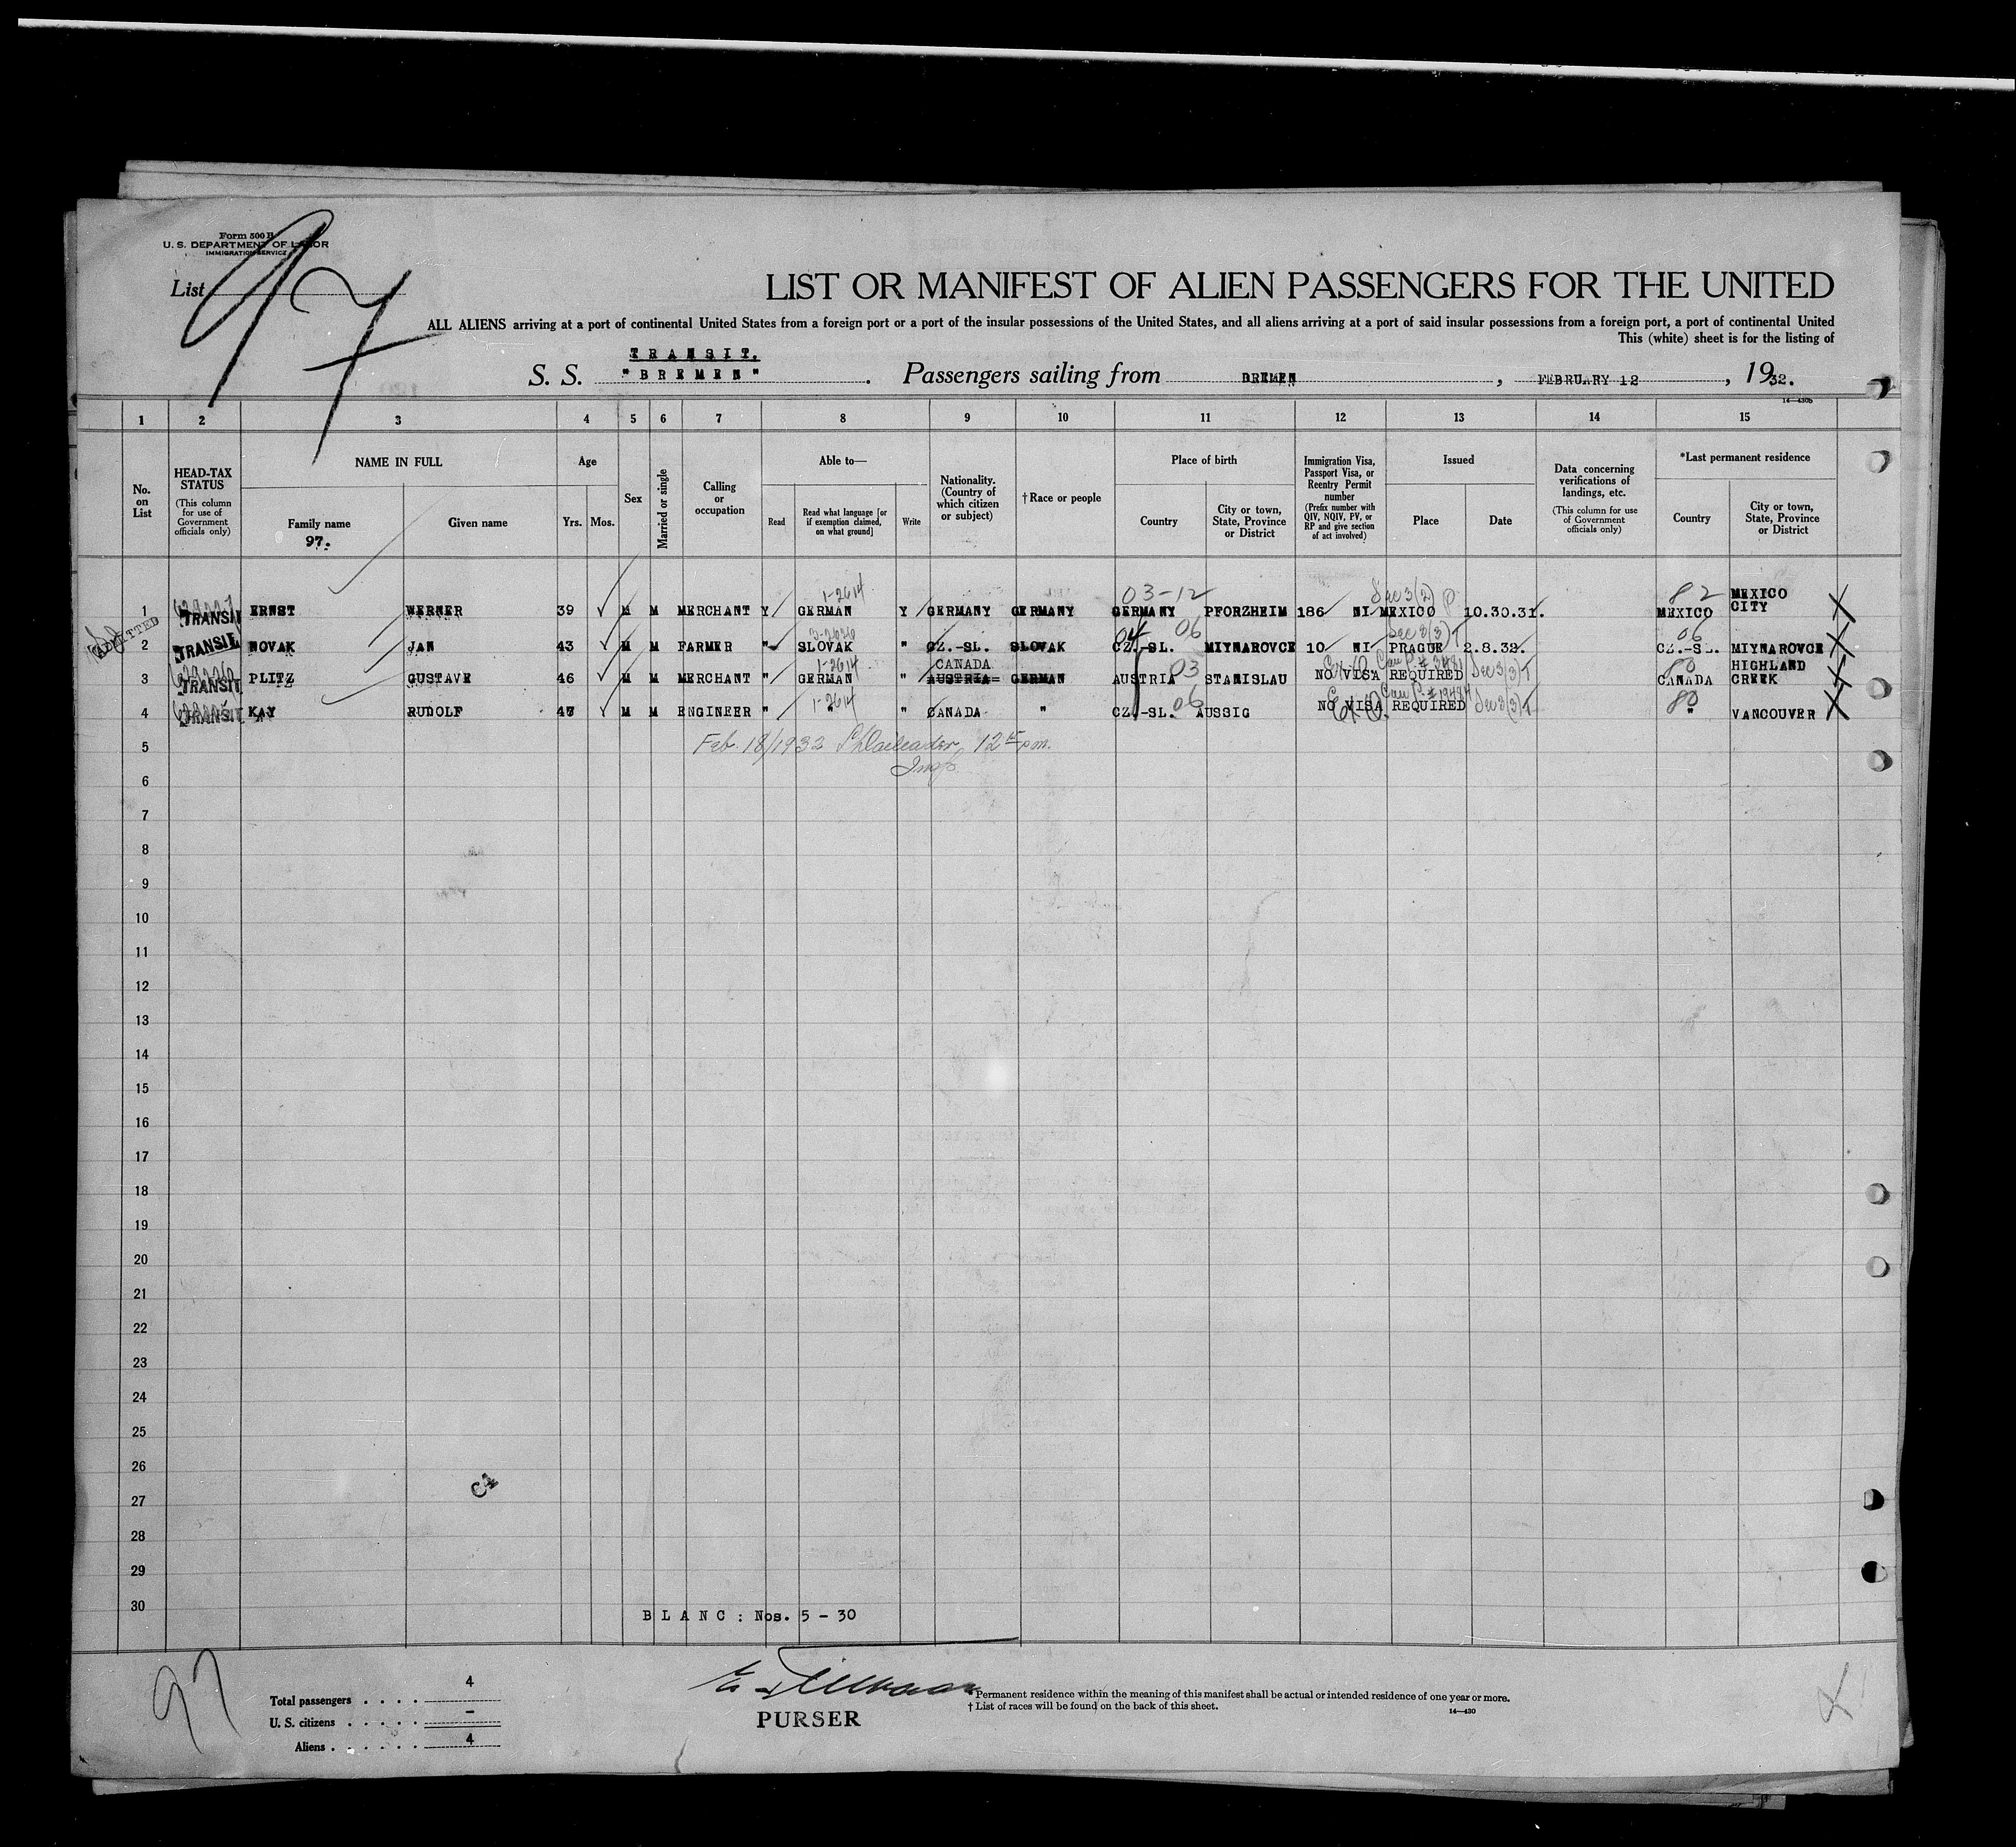 Form 500 B
U. S. DEPARTMENT OF LABOR
IMMIGRATION SERVICE
List 97
LIST OR MANIFEST OF ALIEN PASSENGERS FOR THE UNITED
ALL ALIENS arriving at a port of continental United States from a foreign port or a port of the insular possessions of the United States, and all aliens arriving at a port of said insular possessions from a foreign port, a port of continental United
This (white) sheet is for the listing of
TRANSIT.
S. S. "BREMEN". Passengers sailing from BREMEN, FEBRUARY 12, 1932.
14—430b
1 2 3 4 5 6 7 8 9 10 11 12 13 14 15
No. on List
HEAD-TAX STATUS (This column for use of Government officials only)
NAME IN FULL
Family name
97.
Given name
Age
Yrs. Mos.
Sex
Married or single
Calling or occupation
Able to—
Read
Read what language [or if exemption claimed, on what ground]
Write
Nationality. (Country of which citizen or subject)
† Race or people
Place of birth
Country
City or town, State, Province or District
Immigration Visa, Passport Visa, or Reentry Permit number (Prefix number with QIV, NQIV, PV, or RP and give section of act involved)
Issued
Place
Date
Data concerning verifications of landings, etc. (This column for use of Government officials only)
*Last permanent residence
Country
City or town, State, Province or District
1-2614 03-12 Sec 3(2) 82
1 TRANSIT ERNST WERNER 39 M M MERCHANT Y GERMAN Y GERMANY GERMANY GERMANY PFORZHEIM 186 NI MEXICO 10.30.31. MEXICO MEXICO CITY
ADMITTED
04 06 Sec 3(3) T 06
2 TRANSIT NOVAK JAN 43 M M FARMER " SLOVAK " CZ.-SL. SLOVAK CZ.-SL. MIYNAROVCE 10 NI PRAGUE 2.8.32. CZ.-SL. MIYNAROVCE
1-2614 CANADA 03 Sec 3(3) T 80
3 TRANSIT PLITZ GUSTAVE 46 M M MERCHANT " GERMAN " AUSTRIA GERMAN AUSTRIA STANISLAU NO VISA REQUIRED CANADA HIGHLAND CREEK
1-2614 06 Sec 3(3) T 80
4 TRANSIT KAY RUDOLF 47 M M ENGINEER " " " CANADA " CZ.-SL. AUSSIG NO VISA REQUIRED " VANCOUVER
5
Feb. 18/1932 12 15 pm.
Insp.
6
7
8
9
10
11
12
13
14
15
16
17
18
19
20
21
22
23
24
25
26
C4
27
28
29
30
BLANC: Nos. 5 - 30
97
Total passengers . . . . 4
U. S. citizens . . . . . –
Aliens . . . . . . 4
PURSER
* Permanent residence within the meaning of this manifest shall be actual or intended residence of one year or more.
† List of races will be found on the back of this sheet.
14—430